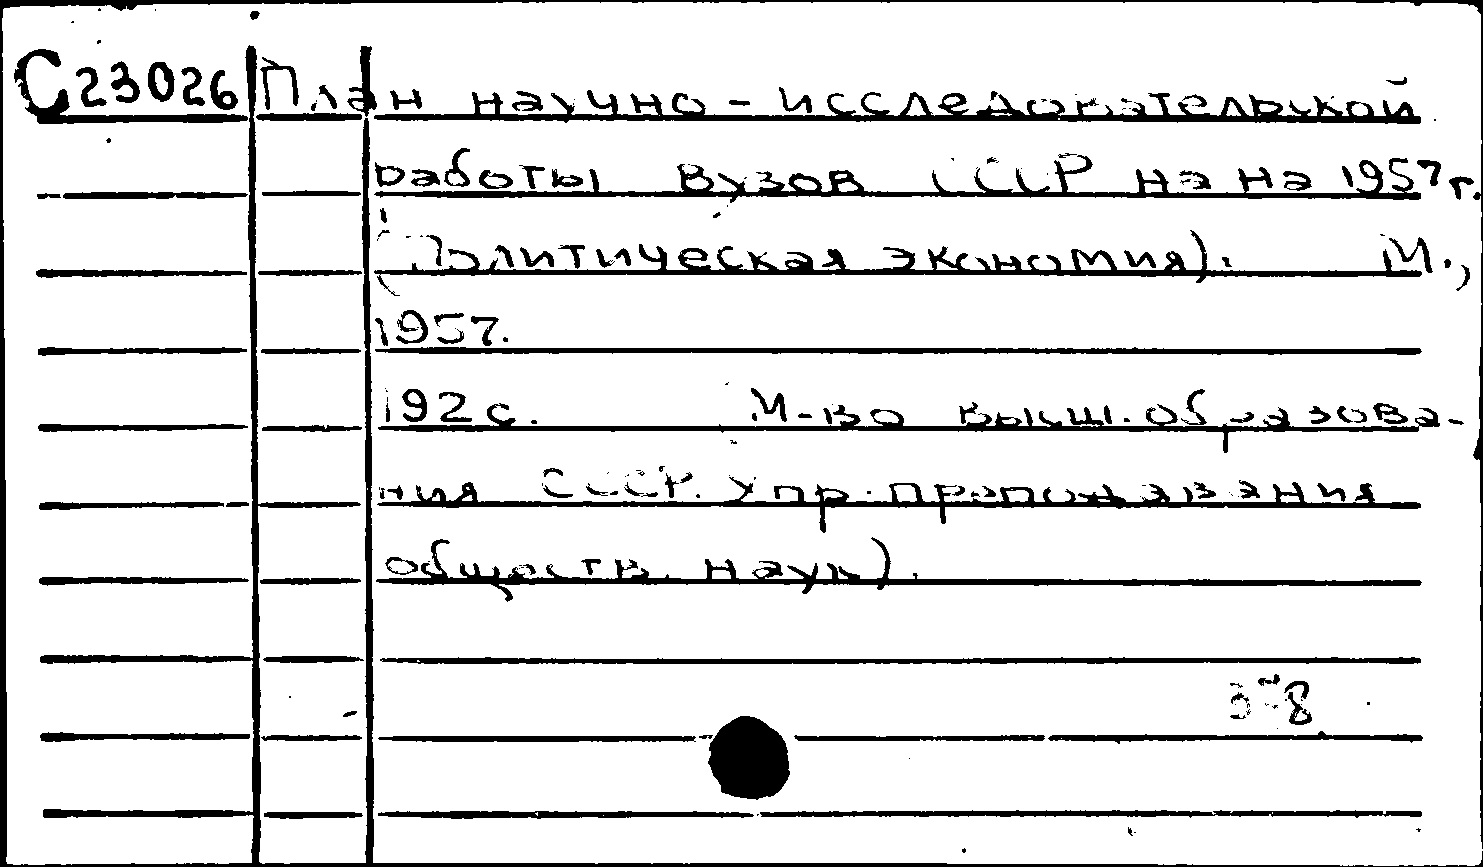 C23026 План научно-исследовательской
работы вузов СССР на на 1957 г.
(Политическая экономия). М.,
1957.
192 с. М-во высш. образова-
ния СССР. Упр. преподавания
обществ. наук).